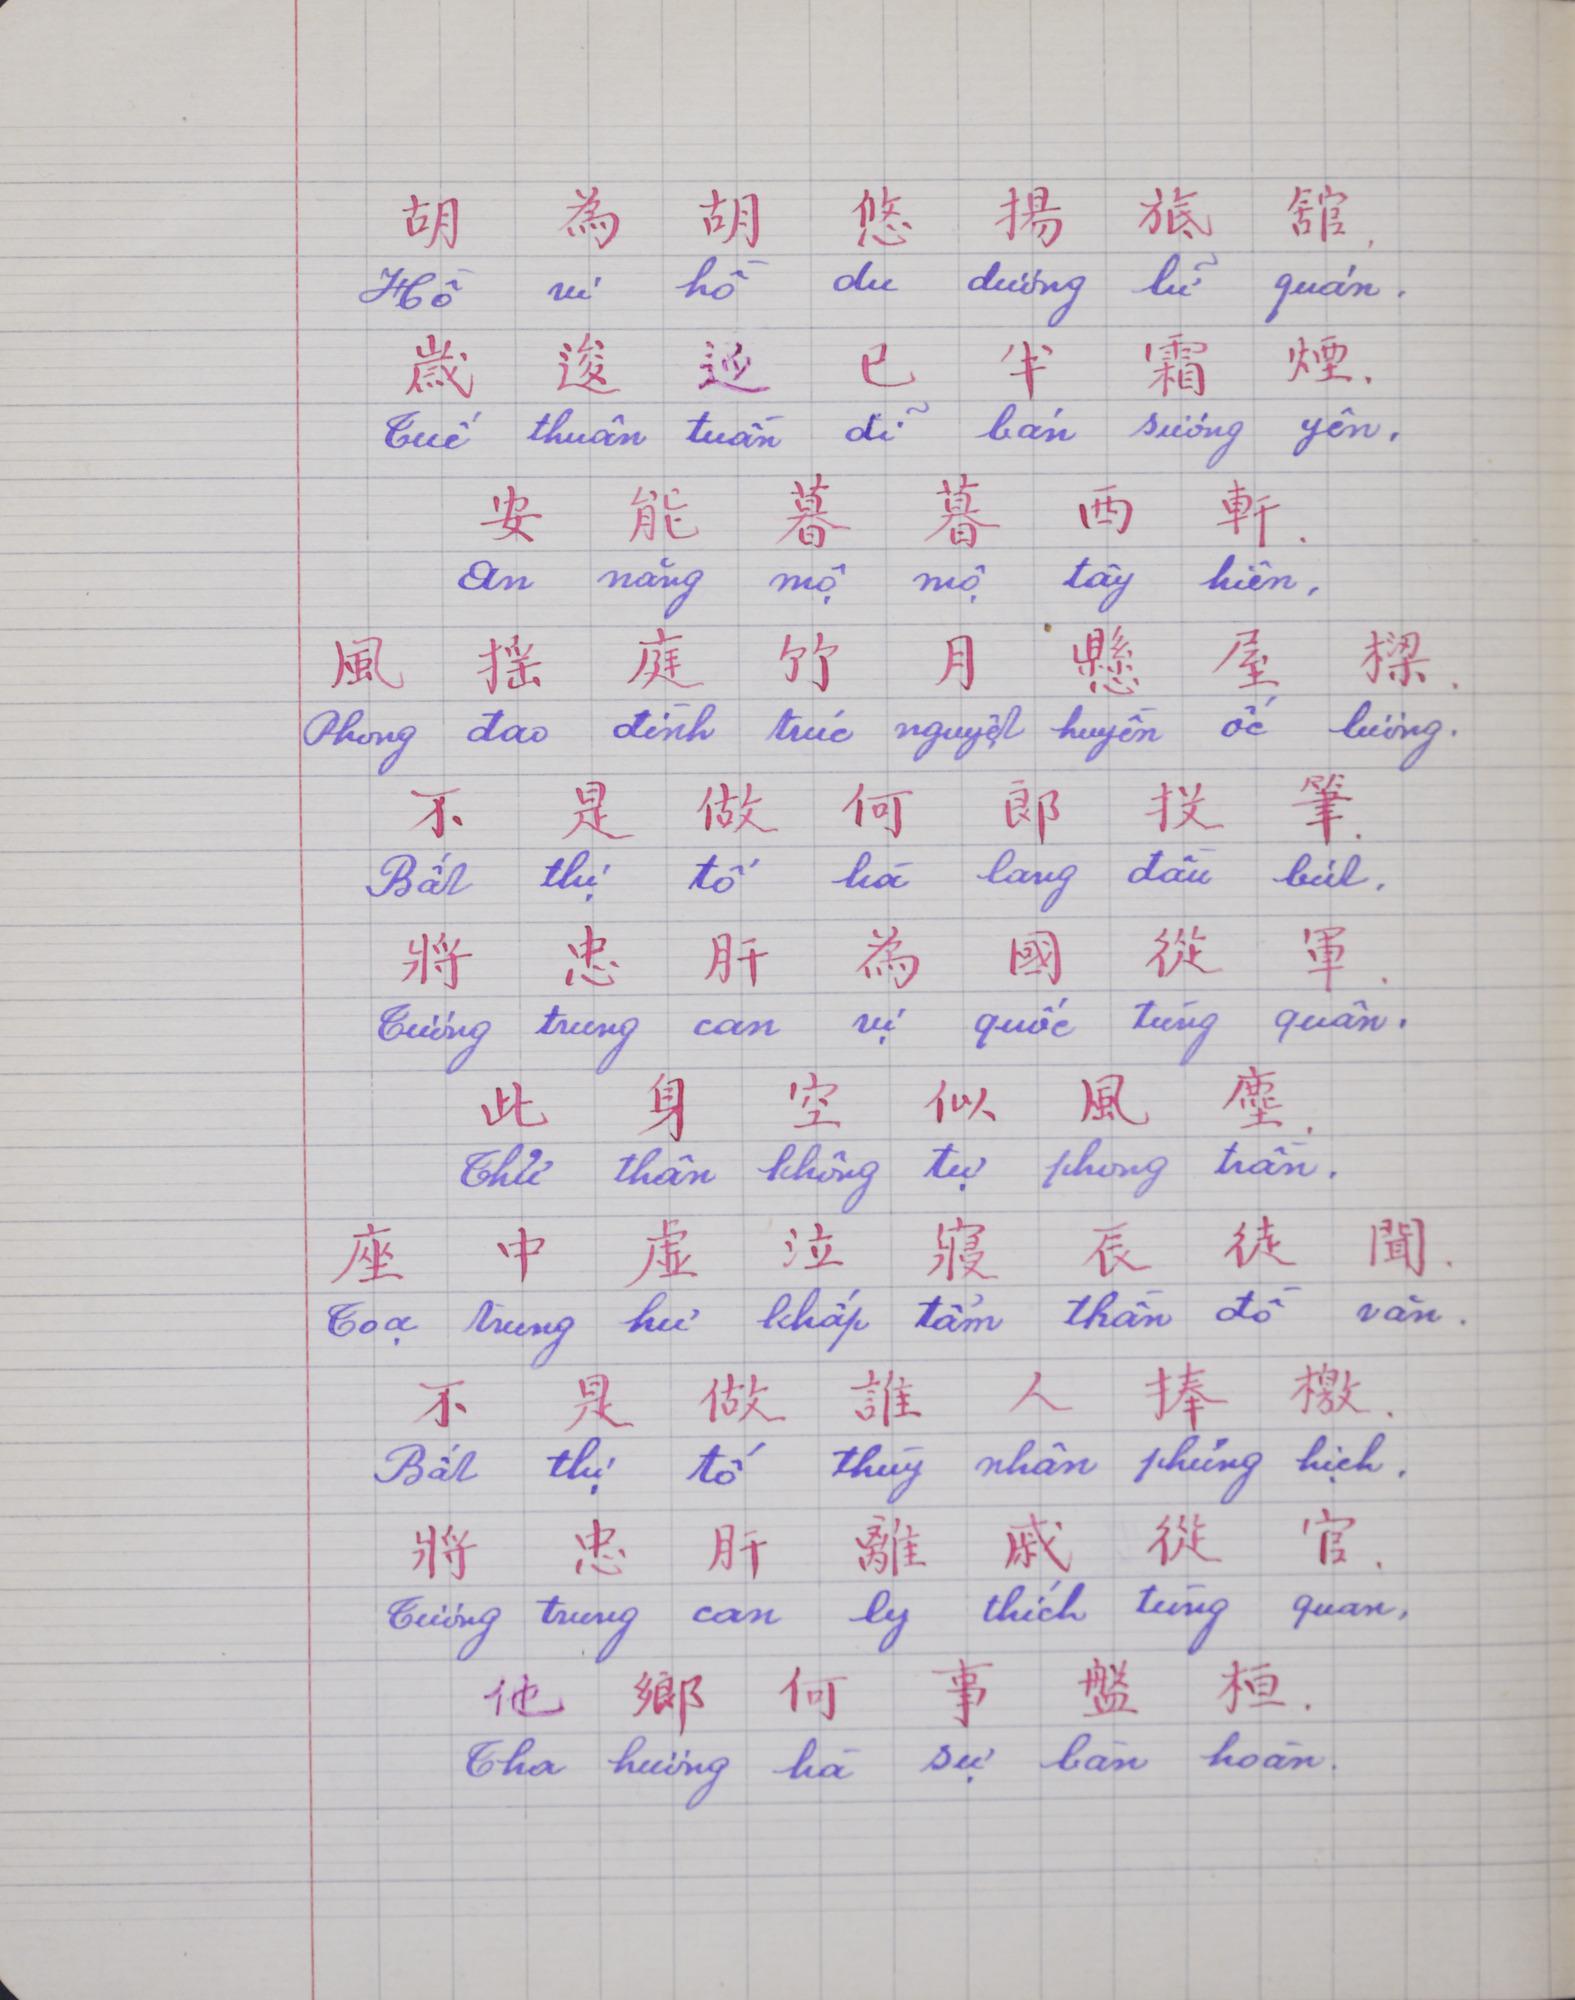 胡 為 胡 悠 揚 旅 舘.
Hồ vi hồ du dương lữ quán.
歲 逡 巡 已 半 霜 煙.
Tuế thuân tuần dĩ bán sương yên.
安 能 暮 暮 西 軒.
An năng mộ mộ tây hiên.
風 揺 庭 竹 月 懸 屋 樑.
Phong dao đình trúc nguyệt huyền ốc lương.
不 是 做 何 郎 投 筆.
Bất thị tố hà lang đầu bút.
將 忠 肝 為 國 從 軍.
Tương trung can vị quốc tùng quân.
此 身 空 似 風 塵.
Thử thân không tự phong trần.
座 中 虛 泣 寢 辰 徒 聞.
Toạ trung hư khấp tẩm thần đồ văn.
不 是 做 誰 人 捧 檄.
Bất thị tố thùy nhân phủng hịch.
將 忠 肝 離 戚 從 官.
Tương trung can ly thích tùng quan.
他 鄉 何 事 盤 桓.
Tha hương hà sự bàn hoàn.